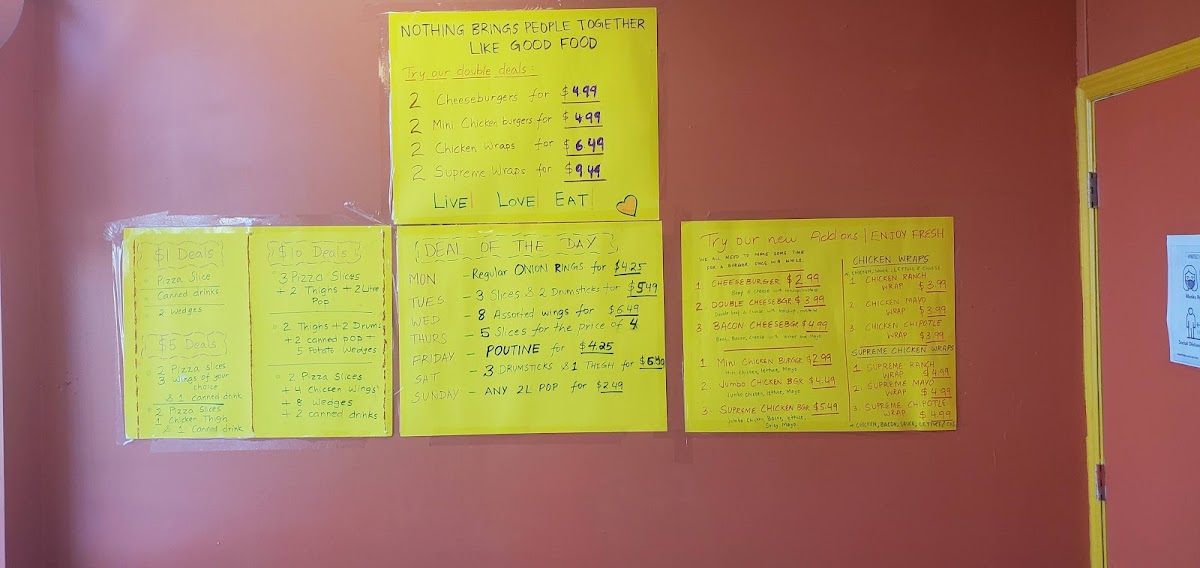 NOTHING BRINGS PEOPLE TOGETHER
LIKE GOOD FOOD
Try our double deals:
2 Cheeseburgers for $4.99
2 Mini Chicken burgers for $4.99
2 Chicken Wraps for $6.49
2 Supreme Wraps for $9.49
LIVE LOVE EAT
$1 Deals
Pizza Slice
Canned drinks
2 Wedges
$5 Deals
2 Pizza slices
3 Wings of your
choice
& 1 canned drink
2 Pizza Slices
1 Chicken Thigh
& 1 canned drink
$10 Deals
3 Pizza Slices
+ 2 Thighs + 2 Liter
Pop
2 Thighs + 2 Drum
+ 2 canned pop +
5 Potato Wedges
2 Pizza Slices
+ 4 Chicken Wings
+ 8 Wedges
+ 2 canned drinks
DEAL OF THE DAY
MON - Regular ONION RINGS for $4.25
TUES - 3 Slices & 2 Drumsticks for $5.49
WED - 8 Assorted wings for $6.49
THURS - 5 Slices for the price of 4
FRIDAY - POUTINE for $4.25
SAT - 3 DRUMSTICKS & 1 THIGH for
SUNDAY - ANY 2L POP for $2.49
Try our new Add ons | ENJOY FRESH
WE ALL NEED TO MAKE SOME TIME
FOR A BURGER ONCE IN A WHILE
1 CHEESEBURGER $2.99
2 DOUBLE CHEESEBGR $3.99
3 BACON CHEESEBGR $4.99
1 Mini CHICKEN BURGER $2.99
Mini chicken, lettuce, Mayo
2. Jumbo CHICKEN BGR $4.49
Jumbo chicken, lettuce, Mayo
3 SUPREME CHICKEN BGR $5.49
Jumbo Chicken, Bacon, lettuce,
Spicy Mayo
CHICKEN WRAPS
1 CHICKEN RANCH
WRAP $3.99
2 CHICKEN MAYO
WRAP $3.99
3 CHICKEN CHIPOTLE
WRAP $3.99
SUPREME CHICKEN WRAPS
1 SUPREME RANCH
WRAP $4.99
2 SUPREME MAYO
WRAP $4.99
3 SUPREME CHIPOTLE
WRAP $4.99